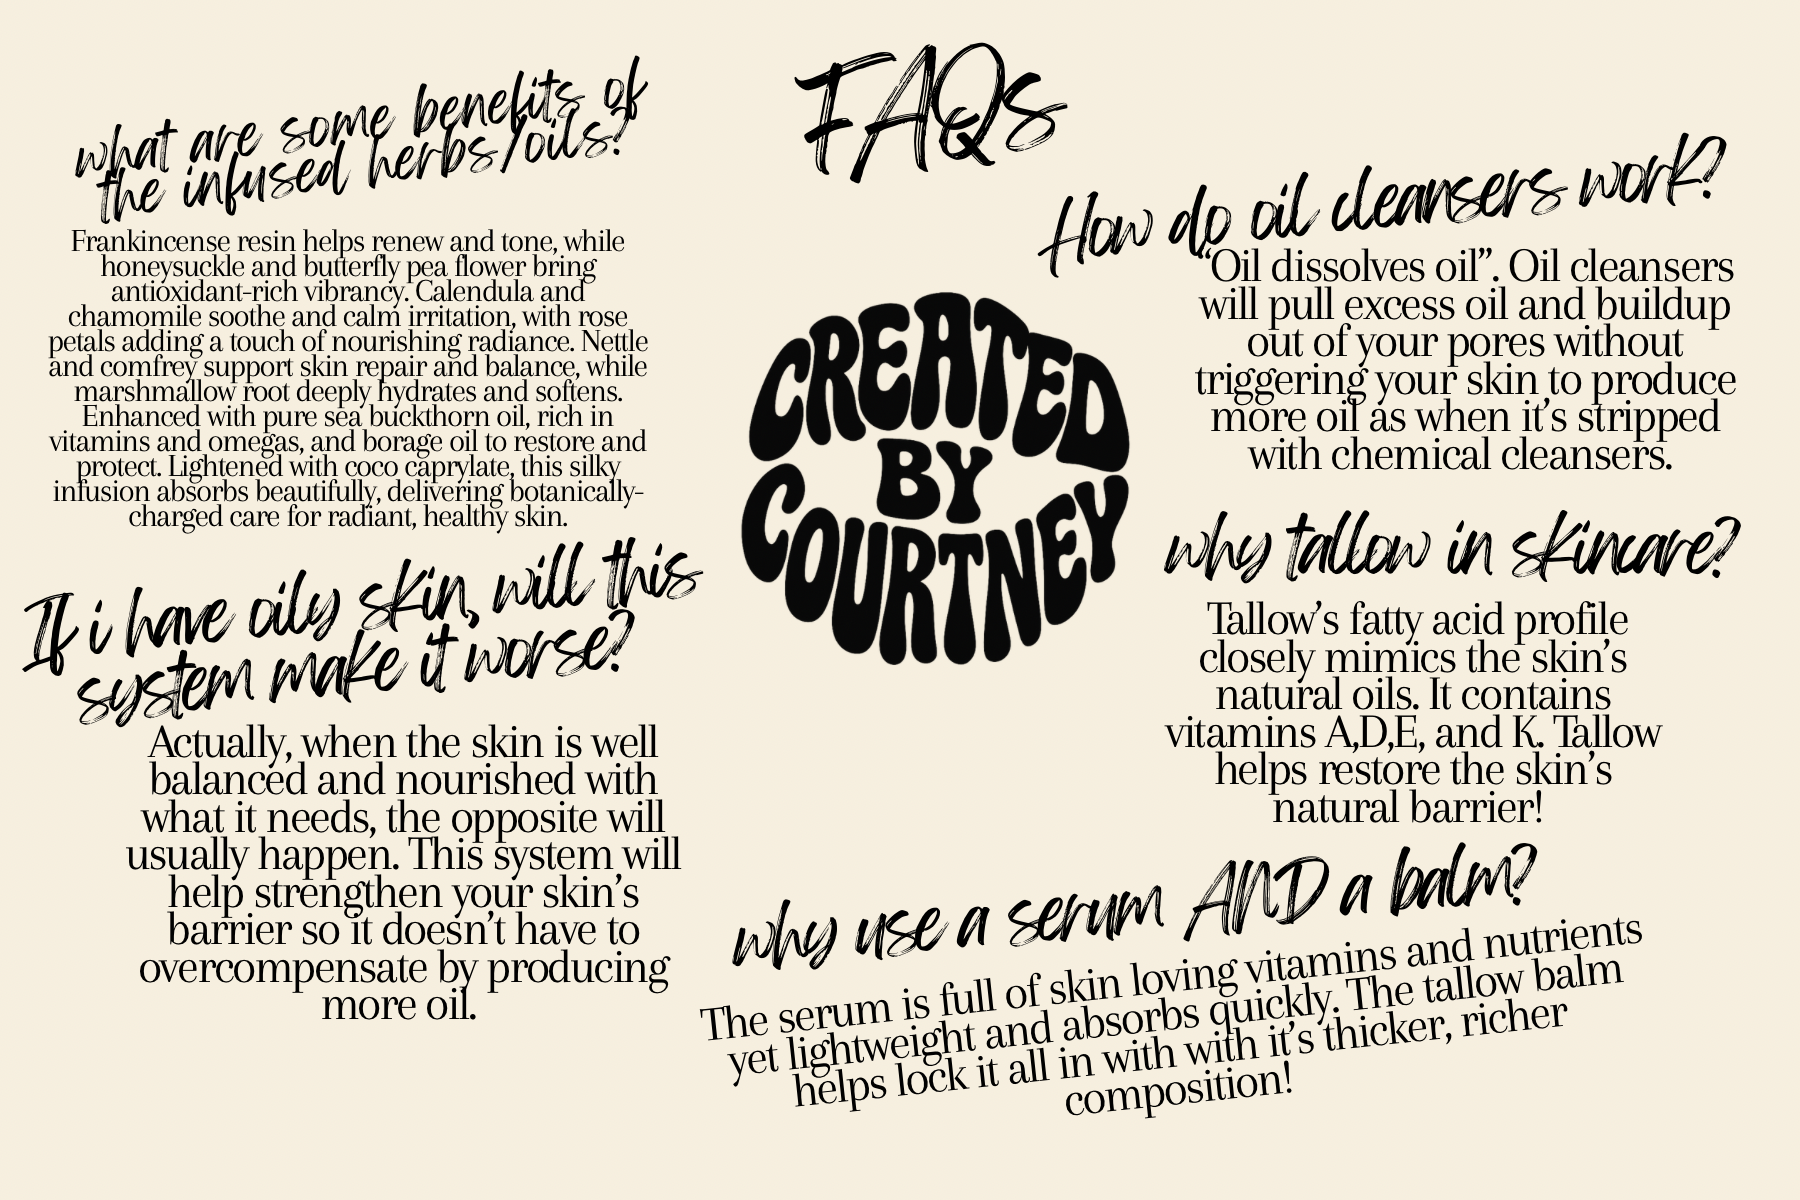 FAQs
what are some benefits of
the infused herbs/oils?
Frankincense resin helps renew and tone, while
honeysuckle and butterfly pea flower bring
antioxidant-rich vibrancy. Calendula and
chamomile soothe and calm irritation, with rose
petals adding a touch of nourishing radiance. Nettle
and comfrey support skin repair and balance, while
marshmallow root deeply hydrates and softens.
Enhanced with pure sea buckthorn oil, rich in
vitamins and omegas, and borage oil to restore and
protect. Lightened with coco caprylate, this silky
infusion absorbs beautifully, delivering botanically-
charged care for radiant, healthy skin.
If i have oily skin, will this
system make it worse?
Actually, when the skin is well
balanced and nourished with
what it needs, the opposite will
usually happen. This system will
help strengthen your skin's
barrier so it doesn't have to
overcompensate by producing
more oil.
CREATED
BY
COURTNEY
How do oil cleansers work?
"Oil dissolves oil". Oil cleansers
will pull excess oil and buildup
out of your pores without
triggering your skin to produce
more oil as when it's stripped
with chemical cleansers.
why tallow in skincare?
Tallow's fatty acid profile
closely mimics the skin's
natural oils. It contains
vitamins A,D,E, and K. Tallow
helps restore the skin's
natural barrier!
why use a serum AND a balm?
The serum is full of skin loving vitamins and nutrients
yet lightweight and absorbs quickly. The tallow balm
helps lock it all in with with it's thicker, richer
composition!